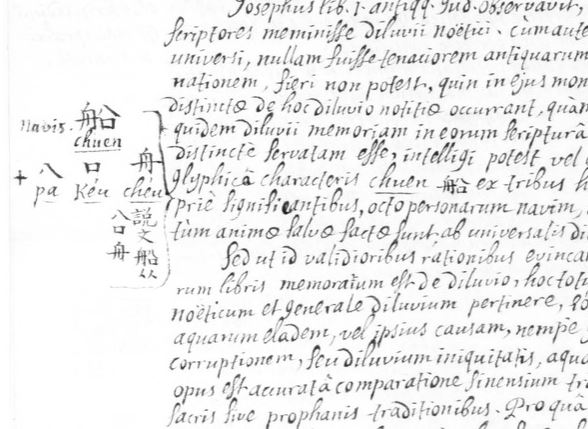 Josephus lib. 1. antiqq. Jud. observavit,
scriptores meminisse diluvii noëtici. cùm aute
universi, nullam fuisse tenaciorem antiquarum
nationem, fieri non potest, quin in ejus mon
distinctæ de hoc diluvio notitiæ occurrant, quàn
quidem diluvii memoriam in eorum scripturâ
distincte servatam esse, intelligi potest vel
glyphicâ characteris chuen 船 ex tribus h
prie significantibus, octo personarum navim,
tùm animæ salvæ factæ sunt, ab universalis di
Sed ut id validioribus rationibus evincat
rum libris memoratum est de diluvio, hoc totu
noëticum et generale diluvium pertinere,
aquarum cladem, vel ipsius causam, nempe
corruptionem, seu diluvium iniquitatis, aqua
opus est accuratâ comparatione Sinensium tr
sacris sive prophanis traditionibus. Pro quâ
navis. 船
chuen
+ 八 口 舟
pa Kéu chéu
說文船从
八口舟